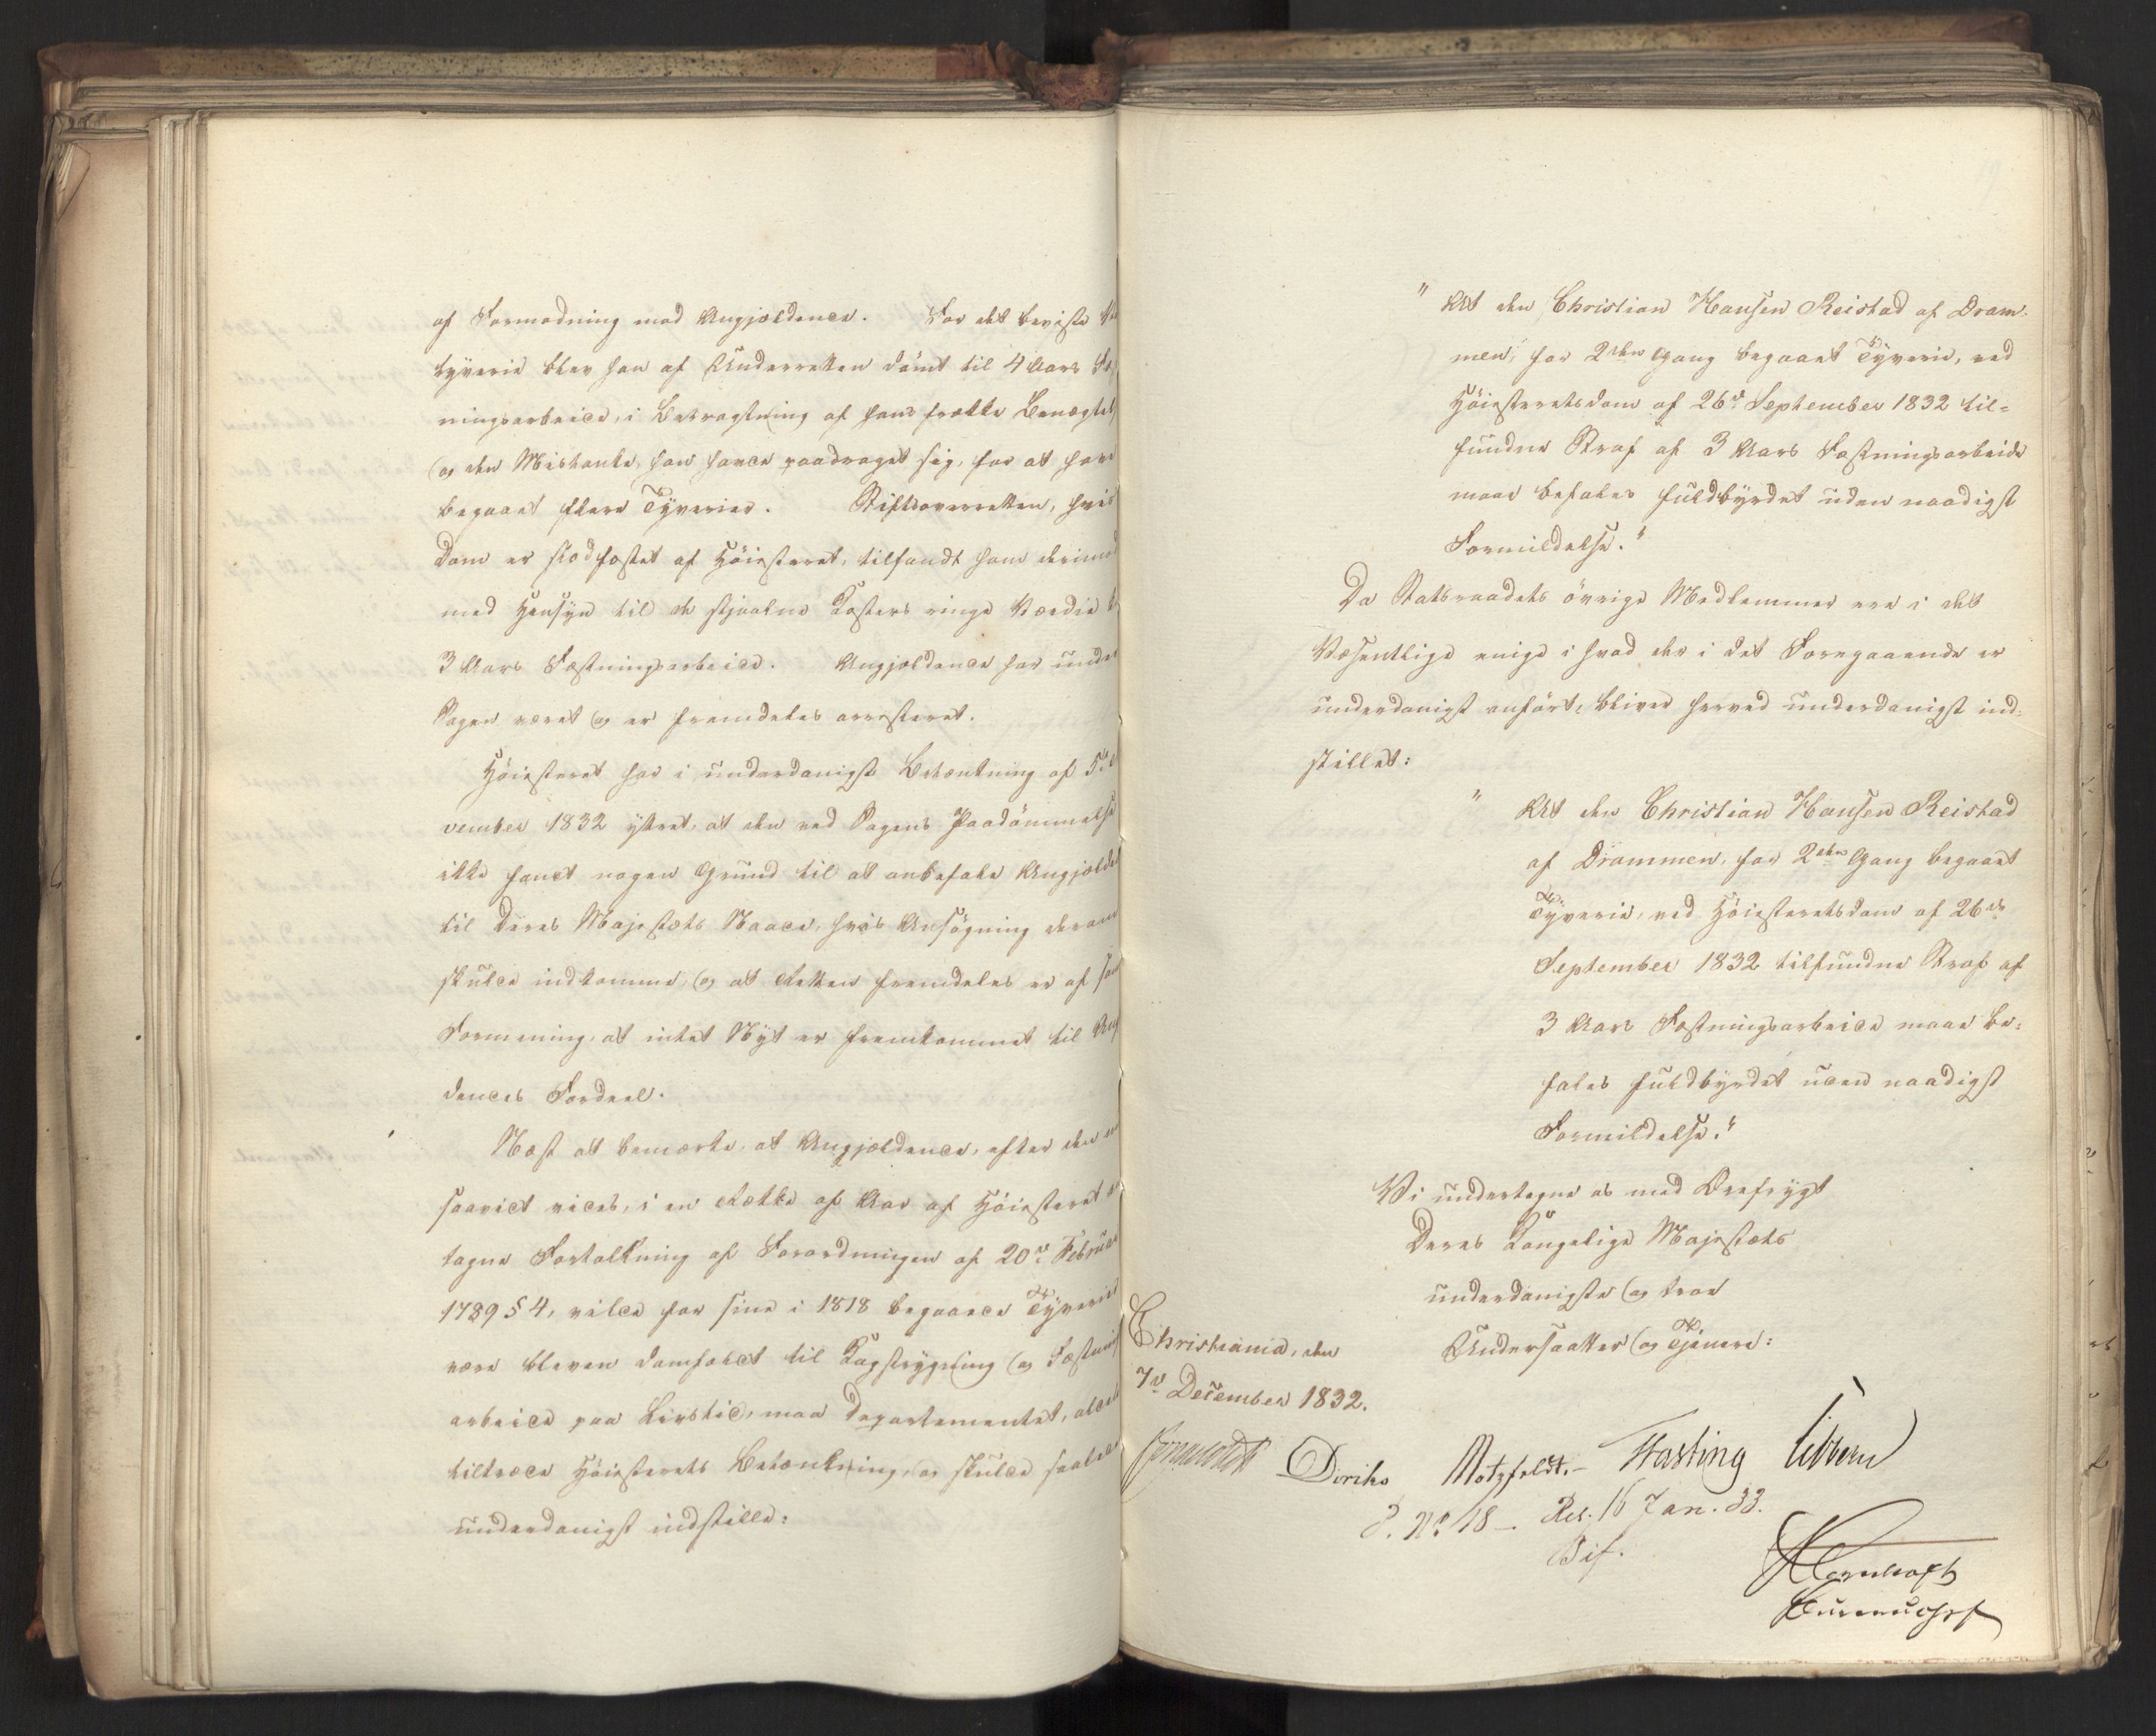 af Formodning mod Angjældende. For det beviste
tyverie blev han af Underretten dömt til 4 Aars
ningsarbeide, i Betragtning af hans frække
og den Mistanke, han havde paadraget sig, for at have
begaaet flere Tyverier. Stiftsoverretten, hvis
Dom er stadfæstet af Höiesteret, tilfandt ham derimod
med Hensyn til de stjaalne Kosters ringe Værdie
3 Aars Fæstningsarbeide. Angjældende har under
Sagen været og er fremdeles arresteret.
Höiesteret har i underdanigst Betænkning af 5te
vember 1832 yttret, at den ved Sagens Paadömmelse
ikke fandt nogen Grund til at anbefale
til Deres Majestæts Naade, hvis Ansögning derom
skulde indkomme, og at Retten fremdeles er af
Formening, at intet Nyt er fremkommet til
dendes Fordeel.
Næst at bemærke, at Angjældende, efter den
saavidt vides, i en Række af Aar af Höiesteret
tagne Fortolkning af Forordningen af 20de Februar
1789 § 4, vilde for sine i 1818 begaaede Tyverier
være bleven domfældt til Kagstrygning og
arbeide paa Livstid, maa Departementet,
tiltræde Höiesterets Betænkning, og skulde saaledes
underdanigst indstille:
" At den Christian Hansen Reistad af Dram-
men, for 2den Gang begaaet Tyverie, ved
Höiesteretsdom af 26de September 1832 til=
fundne Straf af 3 Aars Fæstningsarbeide
maae befales fuldbyrdet uden naadigst
Formildelse."
Da Statsraadets övrige Medlemmer ere i det
Væsentlige enige i hvad der i det Foregaaende er
underdanigst anfört, bliver herved underdanigst ind-
stillet:
" At den Christian Hansen Reistad
af Drammen, for 2den Gang begaaet
Tyverie, ved Höiesteretsdom af 26de
September 1832 tilfundne Straf af
3 Aars Fæstningsarbeide maae be-
fales fuldbyrdet uden naadigst
Formildelse."
Vi undertegne os med Ærefrygt
Deres Kongelige Majestæts
underdanigste og troe
Undersaatter og Tjenere:
Christiania, den
7de December 1832.
Diriks Motzfeldt.- Fasting Vibe
No 18 - Res. 16 Jan. 33.
Bif.